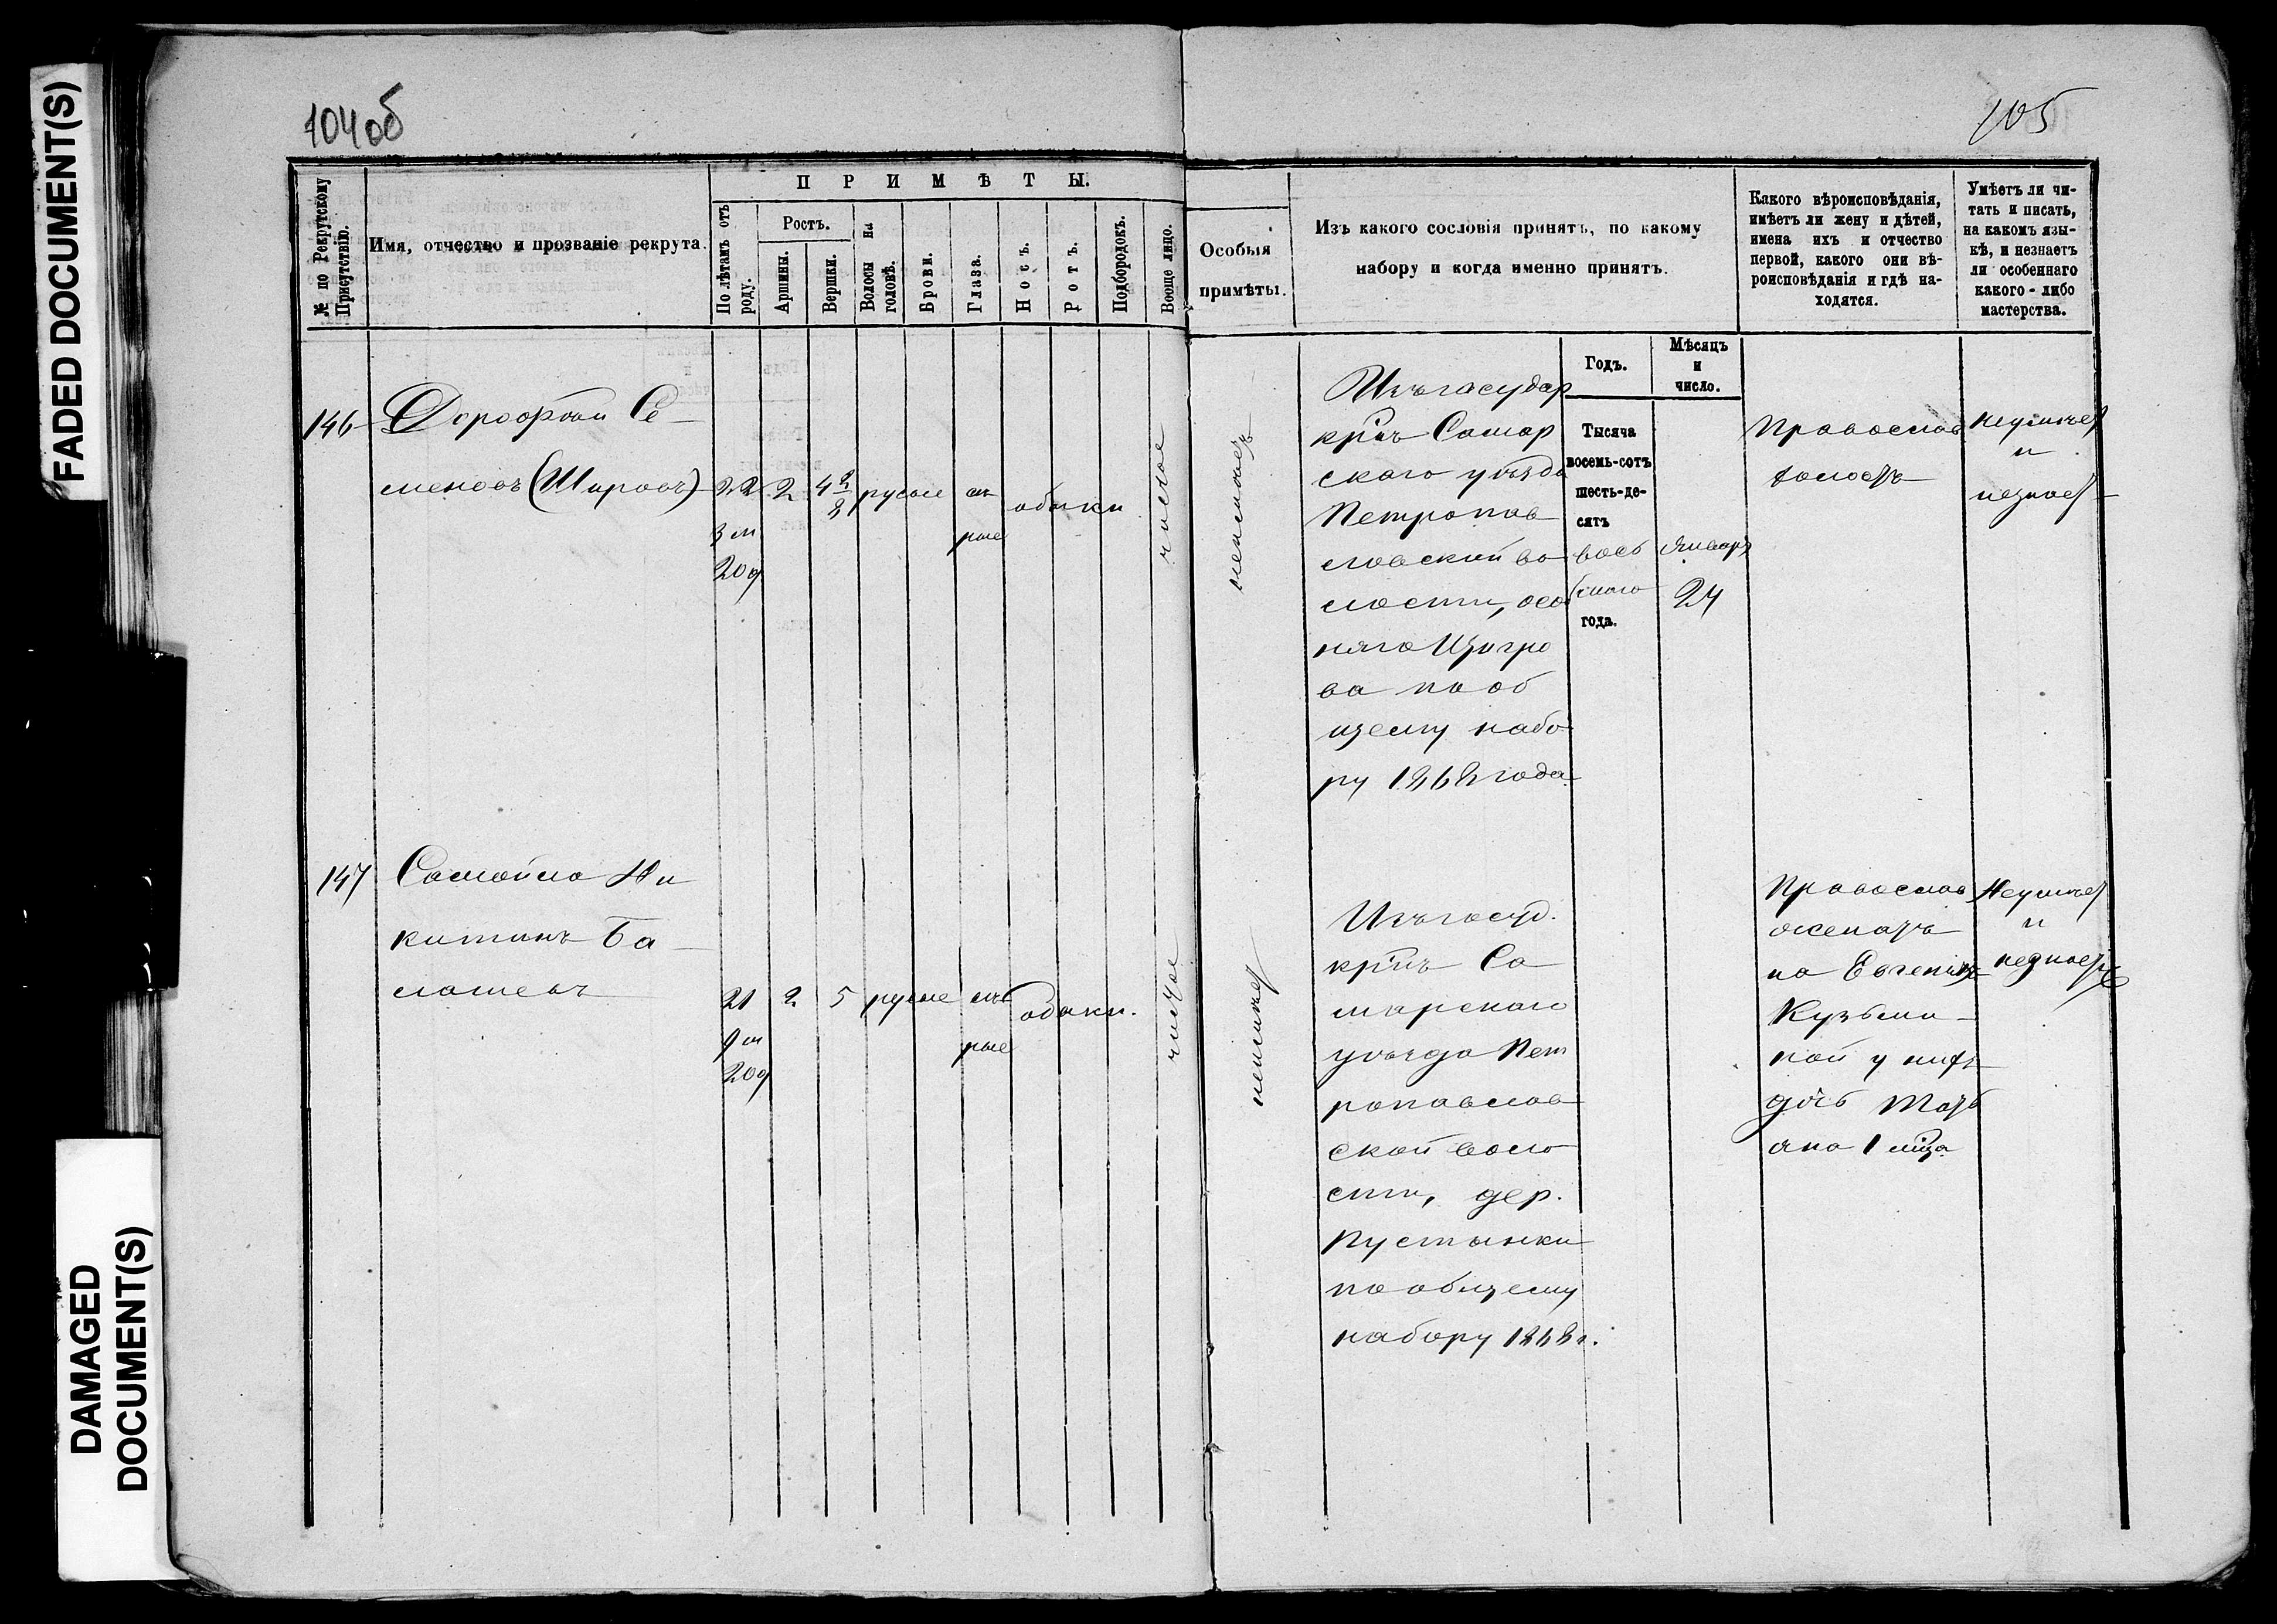 FADED DOCUMENT(S)
DAMAGED
DOCUMENT(S)
104об
105
№ по Рекрутскому
Присутствію.
Имя, отчество и прозваніе рекрута.
ПРИМѢТЫ.
По лѣтамъ отъ
роду.
Ростъ.
Аршины.
Вершки.
Волосы на
головѣ.
Брови.
Глаза.
Носъ.
Ротъ.
Подбородокъ.
Вооще лицо.
Особыя
примѣты.
Изъ какого сословія принятъ, по какому
набору и когда именно принятъ.
Какого вѣроисповѣданія,
имѣетъ ли жену и дѣтей,
имена ихъ и отчество
первой, какого они вѣ-
роисповѣданія и гдѣ на-
ходятся.
Умѣетъ ли чи-
тать и писать,
на какомъ язы-
кѣ, и незнаетъ
ли особеннаго
какого-либо
мастерства.
Годъ.
Мѣсяцъ
и
число.
146
Дорофѣй Се
меновъ (Шировъ)
22
3 м
20 д
2
4 2/8
русые
сѣ
рые
обыкн
чистое
неимѣетъ
Изъ государ
кр̃нъ Самар
скаго уѣзда
Петропав
ловской во
лости, сел
по об
щему набо
ру 1868 года
Тысяча
восемь-сотъ
шесть-де-
сятъ
вось
мого
года.
Январь
24
Православ
холостъ
неумѣет
и
незнает
147
Самойло Ни
китинъ Ба
лашевъ
21
9 м
20 д
2
5
русые
сѣ
рые
обыкн.
чистое
неимѣет
Изъ госуд.
кр̃нъ Са
марскаго
уѣзда Пет
ропавлов
ской воло
сти, дер.
Пустынки
по общему
набору 1868 г.
Православ
женатъ
на Евгеніи
Кузьми
ной у них
дочь Тать
яна 1 м̃ца
Неумѣет
и
незнает